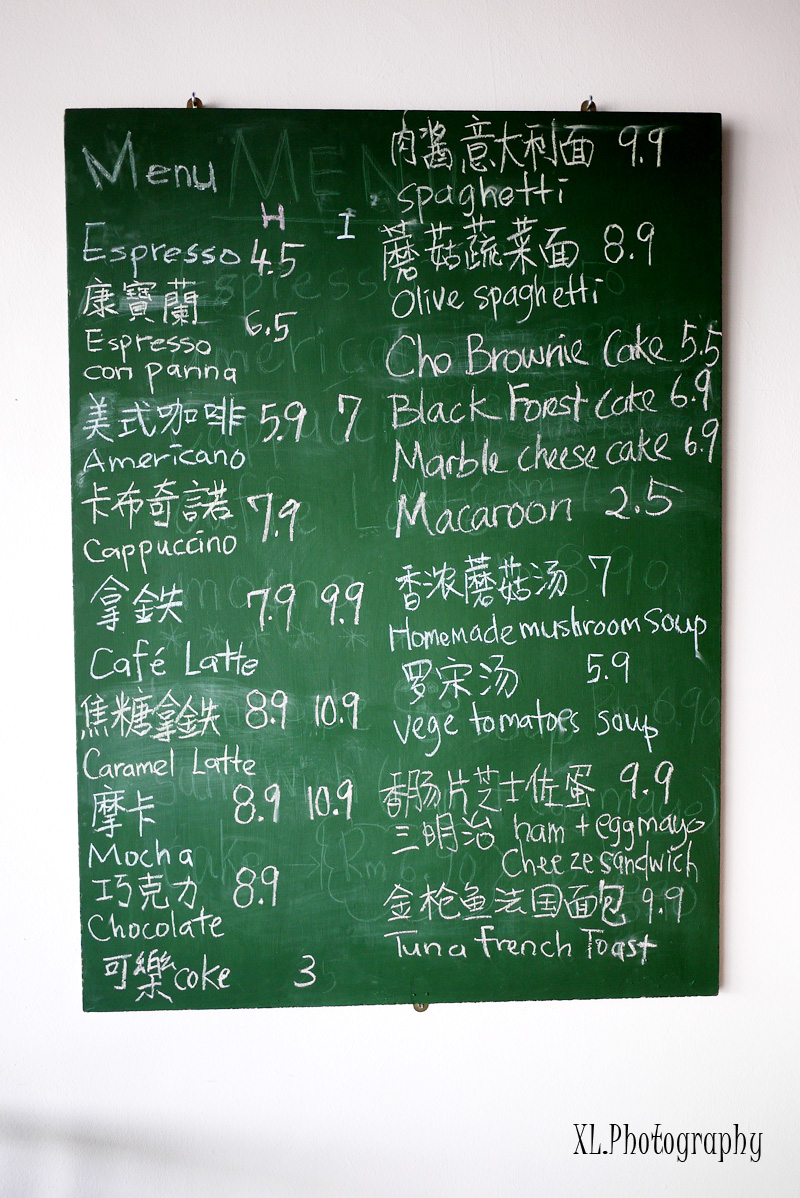 Menu
H I
Espresso 4.5
康寶蘭 6.5
Espresso
con panna
美式咖啡 5.9 7
Americano
卡布奇諾 7.9
Cappuccino
拿鉄 7.9 9.9
Café Latte
焦糖拿鉄 8.9 10.9
Caramel Latte
摩卡 8.9 10.9
Mocha
巧克力 8.9
Chocolate
可樂 coke 3
肉酱意大利面 9.9
spaghetti
蘑菇蔬菜面 8.9
Olive spaghetti
Cho Brownie Cake 5.5
Black Forest cake 6.9
Marble cheese cake 6.9
Macaroon 2.5
香浓蘑菇汤 7
Homemade mushroom soup
罗宋汤 5.9
vege tomatoes soup
香肠片芝士佐蛋 9.9
三明治 ham + egg mayo
Cheeze sandwich
金枪鱼法国面包 9.9
Tuna French Toast
XL.Photography